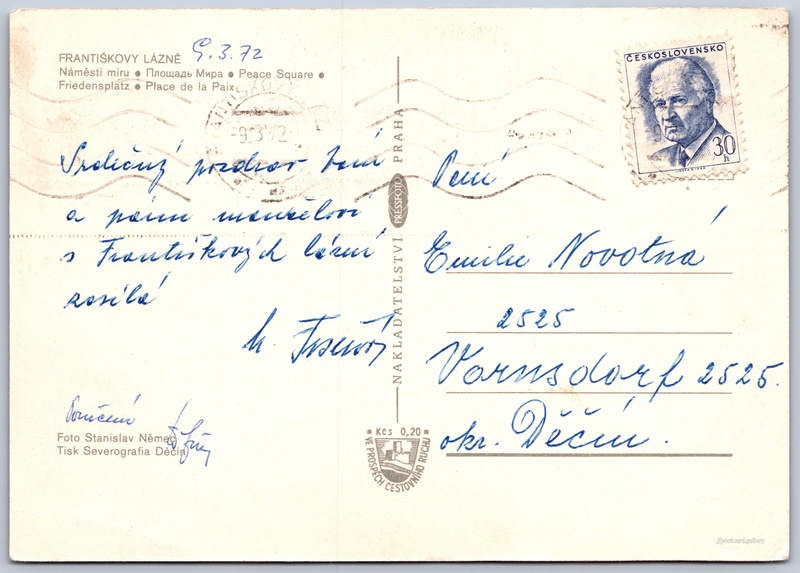 FRANTIŠKOVY LÁZNĚ 9.3.72
Náměstí míru • Площадь Мира • Peace Square •
Friedensplatz • Place de la Paix
Srdečný pozdrav Vám
a pánu manželovi
s Františkových lázní
zasílá
Poručení
Foto Stanislav Němec
Tisk Severografia Děčín
NAKLADATELSTVÍ PRESSFOTO PRAHA
Kčs 0,20
VE PROSPĚCH CESTOVNÍHO RUCHU
ČESKOSLOVENSKO
30 h
Paní
Emilie Novotná
2525
Varnsdorf 2525.
okr. Děčín.